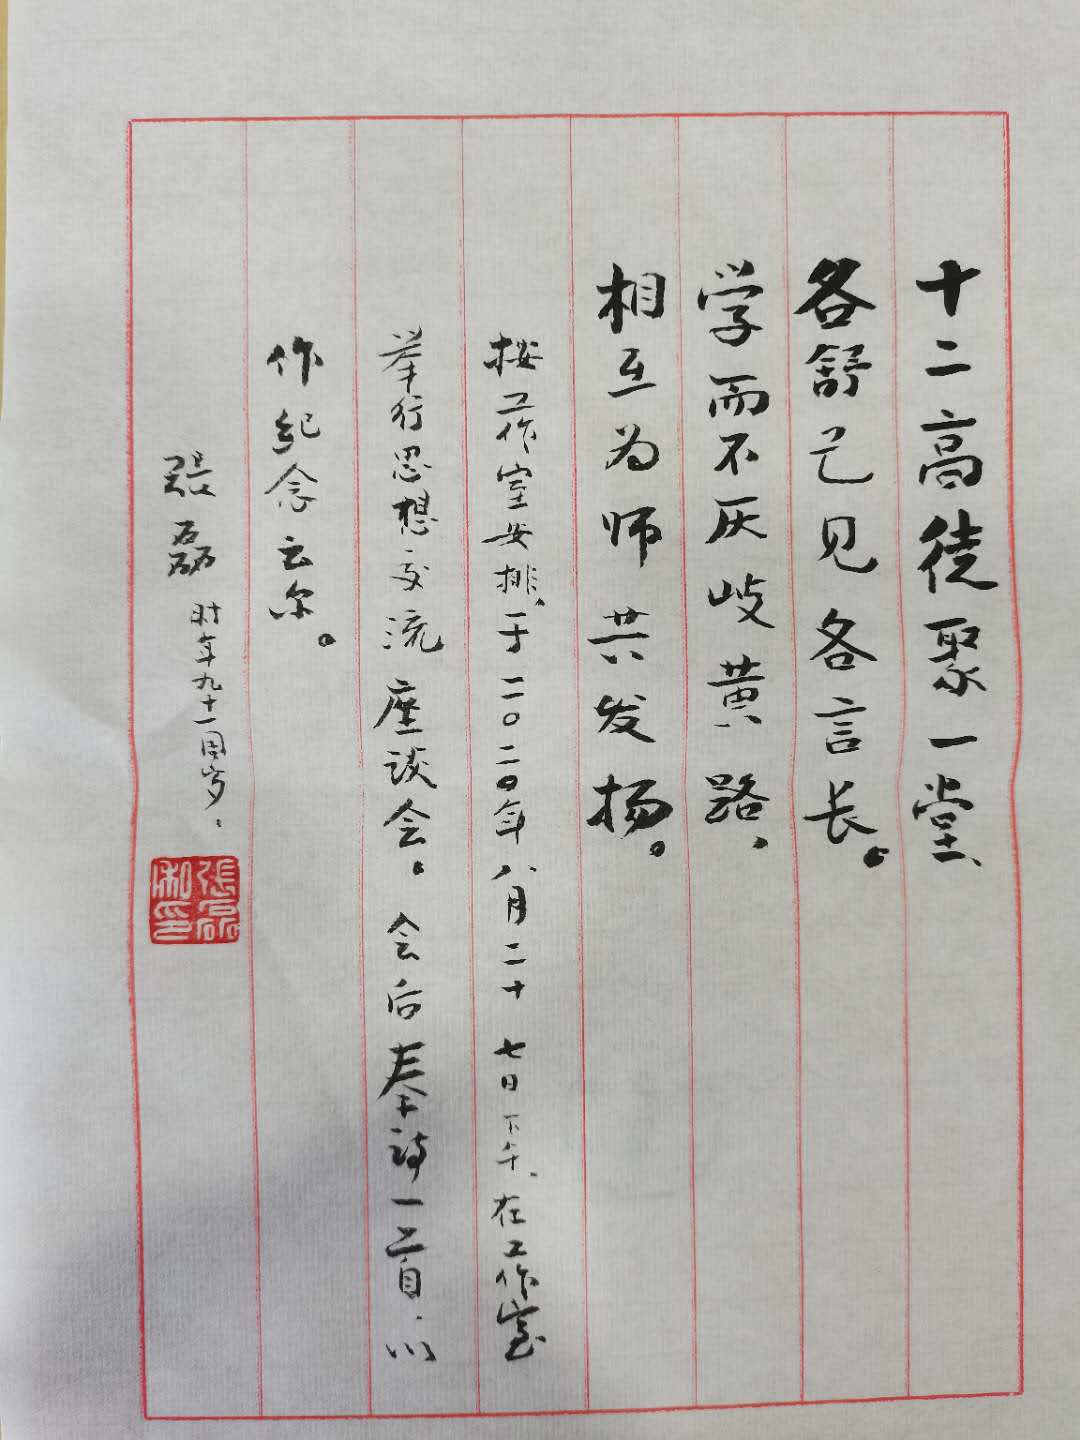 十二高徒聚一堂、
各舒己见各言长。
学而不厌岐黄路、
相互为师共发扬。
按工作室安排、于二〇二〇年八月二十七日下午、在工作室
举行思想交流座谈会。会后奉诗一首，以
作纪念云尔。
張磊 时年九十一周岁.
張磊私印